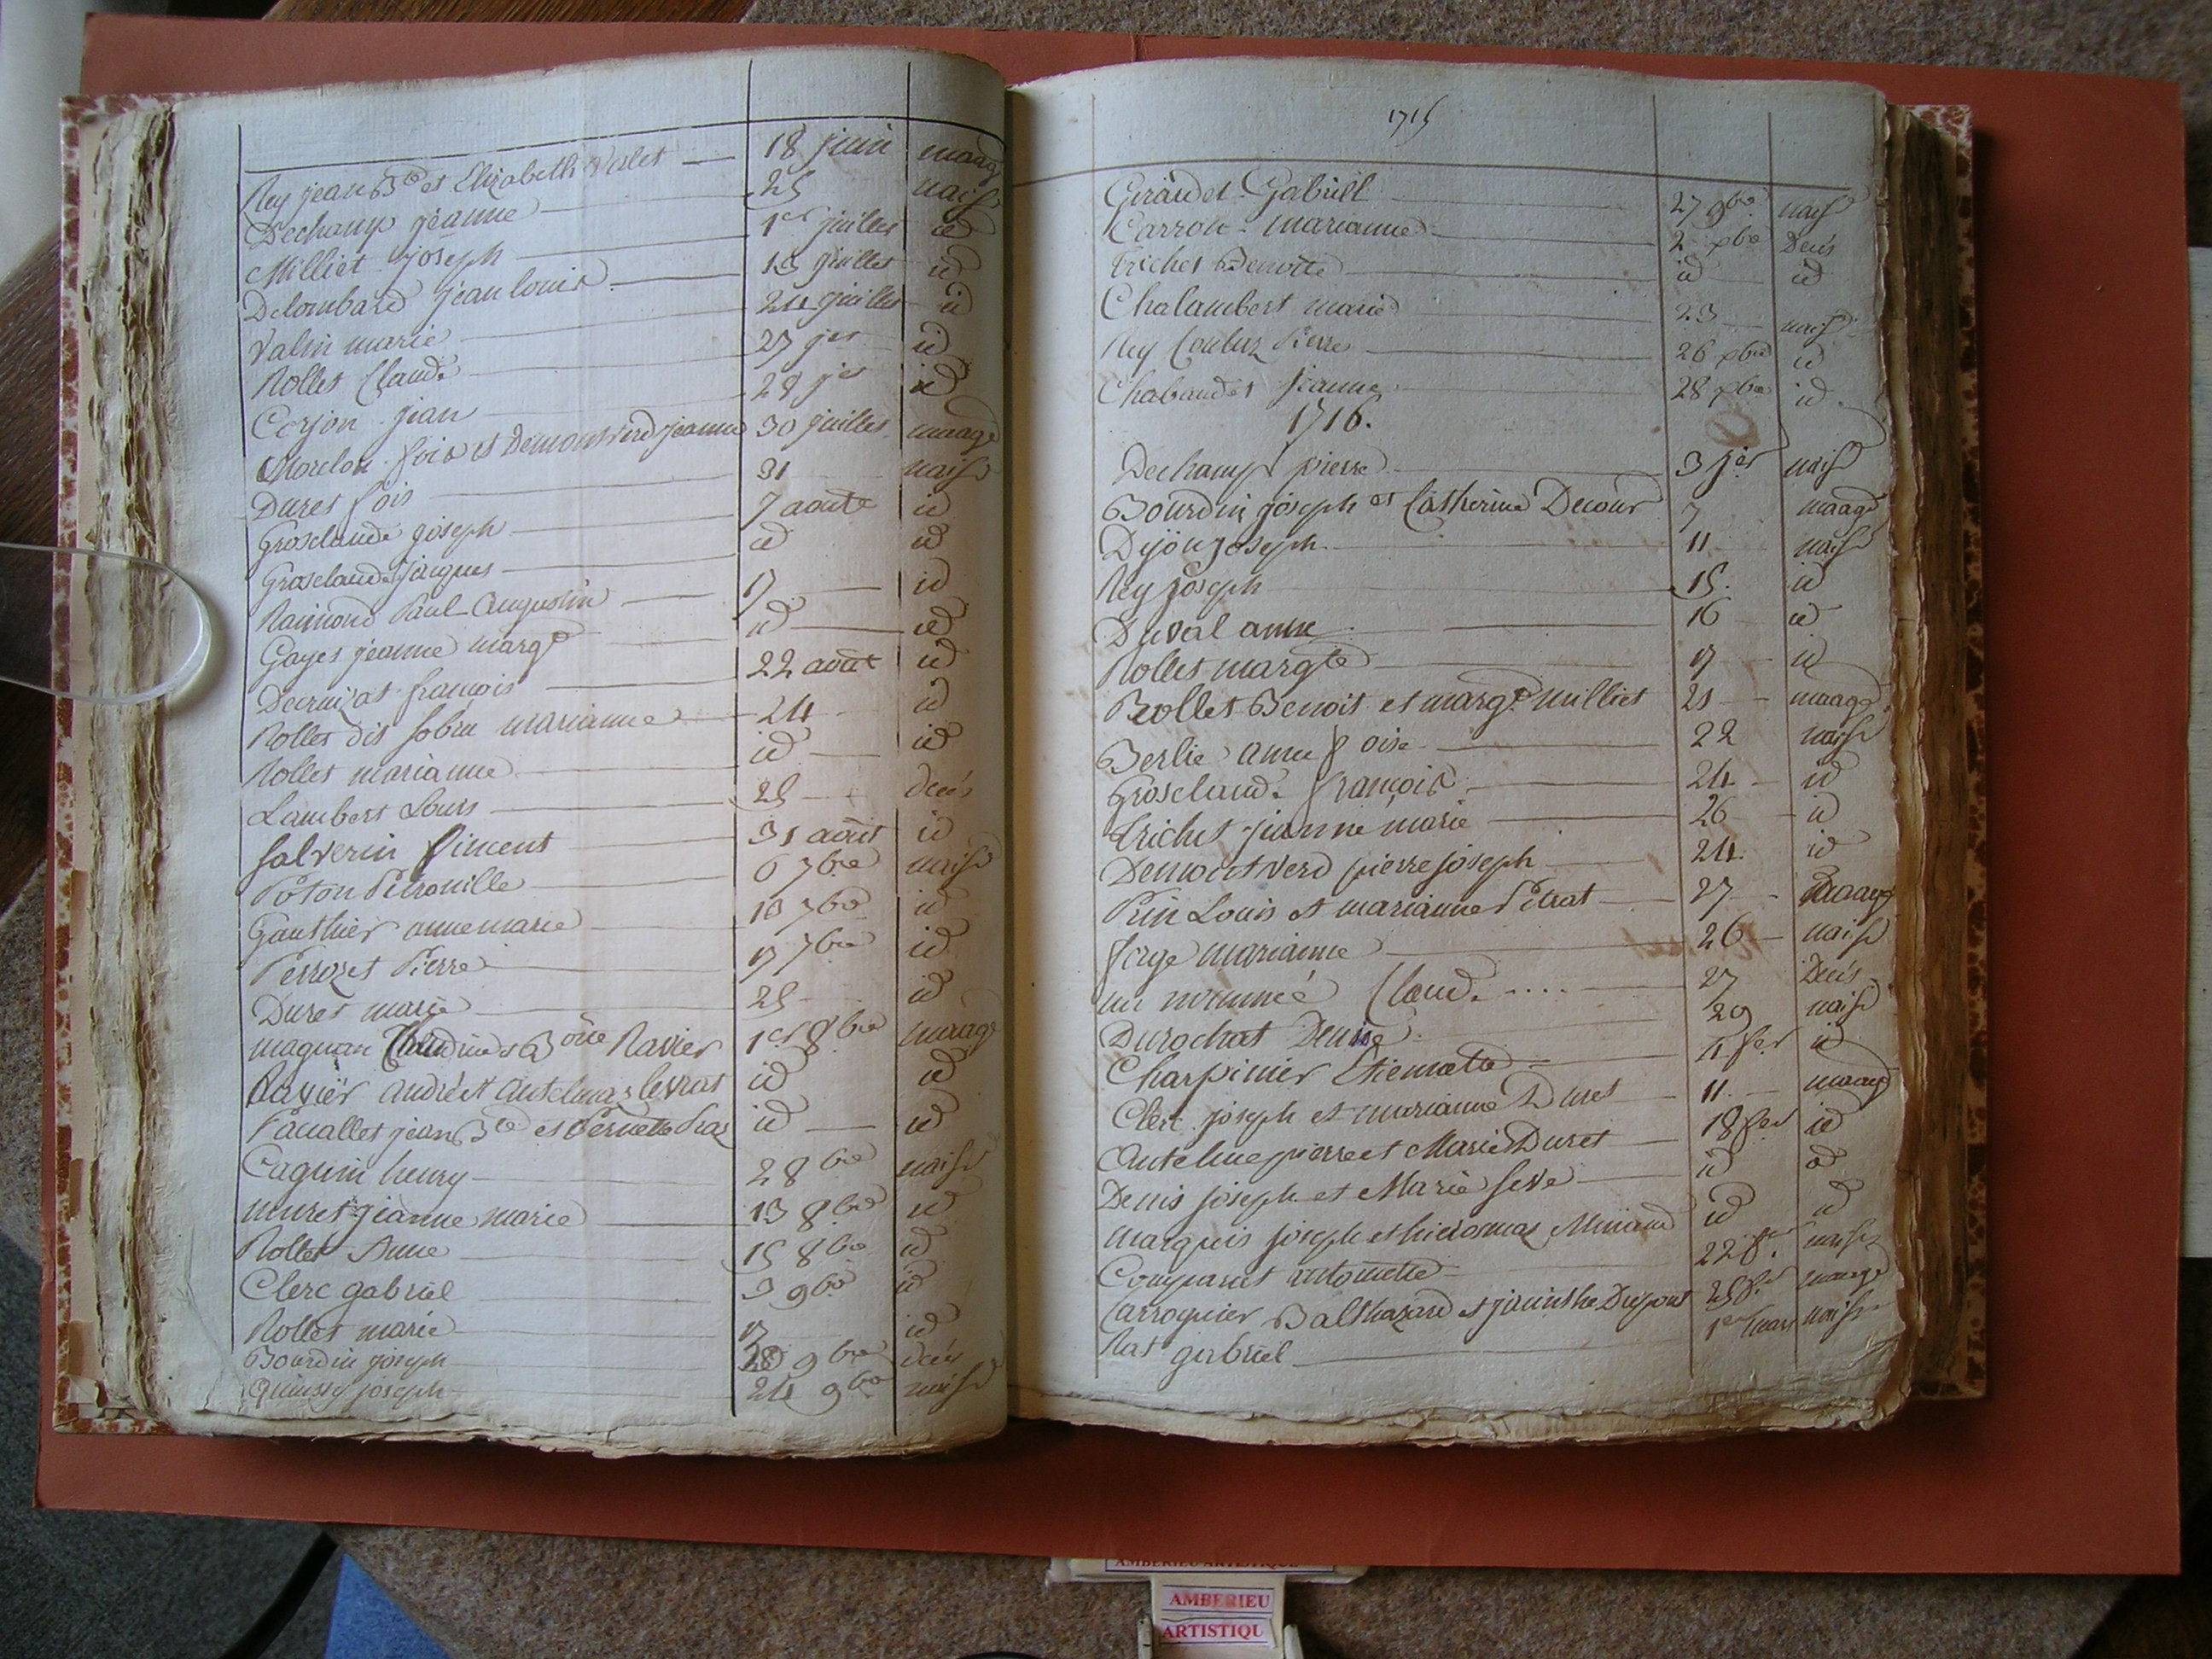 Rey jean Bte et Elizabeth Valet 18 juin maage
Dechamp jeanne 25 naisse
Milliet joseph 1er juillet id
Delombard jean louis 13 juillet id
Valin marie 24 juillet id
Rollet Claude 27 jet id
Corjon jean 28 jet id
Morelon fois et Demontverd jeanne 30 juillet maage
Duret fois 31 naisse
Grosclaude joseph 7 aoute id
Grosclaude jacques id id
Raimond Paul Augustin 17 id
Gayet jeanne margte id id
françois 22 aout id
Rollet dit marianne 24 id
Rollet marianne id id
Lambert Louis 25 decès
Salverin 31 août id
Poton Petronille 6 7bre naisse
Gauthier anne marie 10 7bre id
Perrozet Pierre 17 7bre id
Duret marie 25 id
magnan et Ravier 1er 8bre maage
Ravier andré et Antelmaz levrat id id
jean Bte et Pernette id id
Caguin henry 28bre naisse
muret jeanne marie 13 8bre id
Rollet Anne 15 8bre id
Clerc gabriel 3 9bre id
Rollet marie 17 id
Bourdin joseph 18 9bre decès
joseph 24 9bre naisse
1715
Giraudet Gabriël 27 9bre naisse
Carron marianne 2 xbre Decès
trichet Benoite id id
Chalambert marie 23 naisse
Rey Coulux Pierre 26 xbre id
Chabaudet jeanne 28 xbre id
1716.
Dechamp pierre 3 jer naisse
Bourdin joseph et Catherine Decour 7 maage
Dijon joseph 11 naisse
Rey joseph 15. id
Duval anne 16 id
Rollet margte 17 id
Rollet Benoit et margte milliet 21 maage
Berlie anne foise 22 naisse
Grosclaude françois 24 id
trichet jeanne marie 26 id
Demontverd pierre joseph 24 id
Prin Louis et marianne Pétrat 27 maage
forge marianne 26 naisse
un nommé Claude.... 27 Decès
Durochat Denise 29 naisse
Charpinier Etiennette 4 fer id
Clerc joseph et marianne Duret 11 maage
Antelme pierre et Marie Duret 18 fer id
Denis joseph et Marie Seve id id
marquis joseph et id id
Comparet antoinette 22 fer naisse
Carroquier Balthazard et jacinthe Dupont 25 fer maage
Rat gabriel 1er mars naisse
AMBERIEU ARTISTIQUE
AMBERIEU
ARTISTIQU